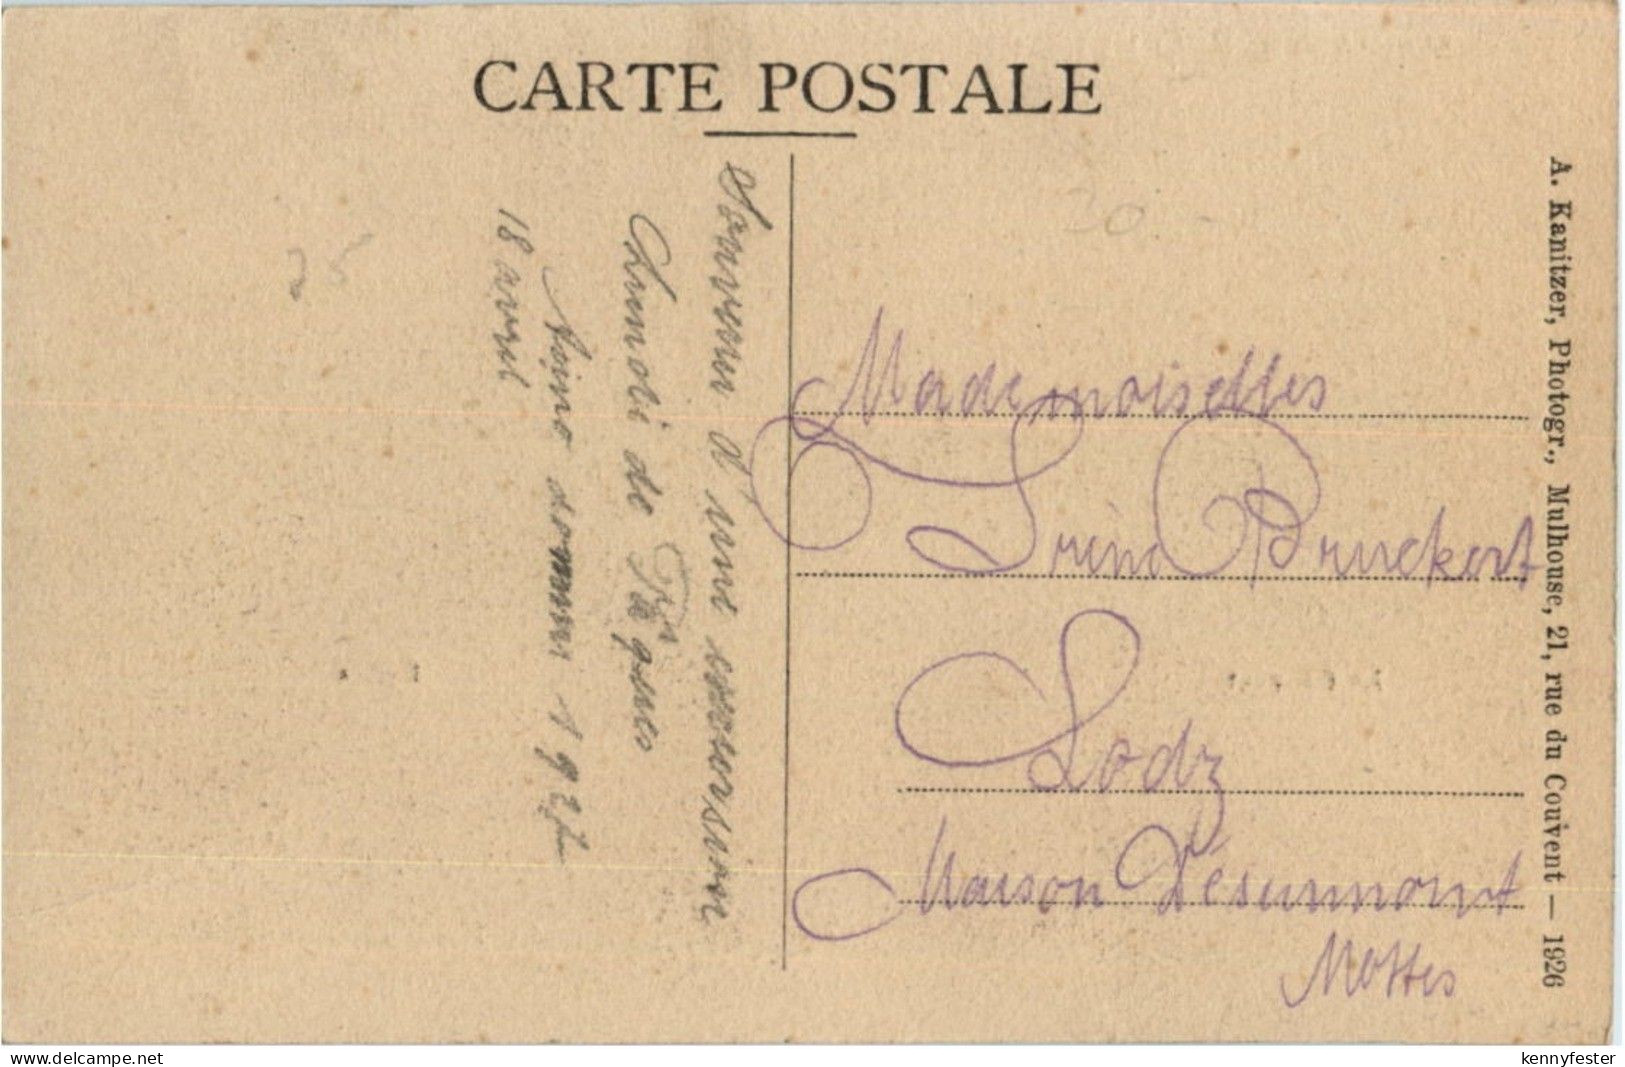 CARTE POSTALE
Souvenir d'une excursion
Lundi de Pâques
Anno domini 1927
18 avril
Mademoiselles
Irène Bruckert
Lodz
Maison Désurmont
Mottes
A. Kanitzer, Photogr., Mulhouse, 21, rue du Couvent — 1926
30 -
www.delcampe.net
kennyfester